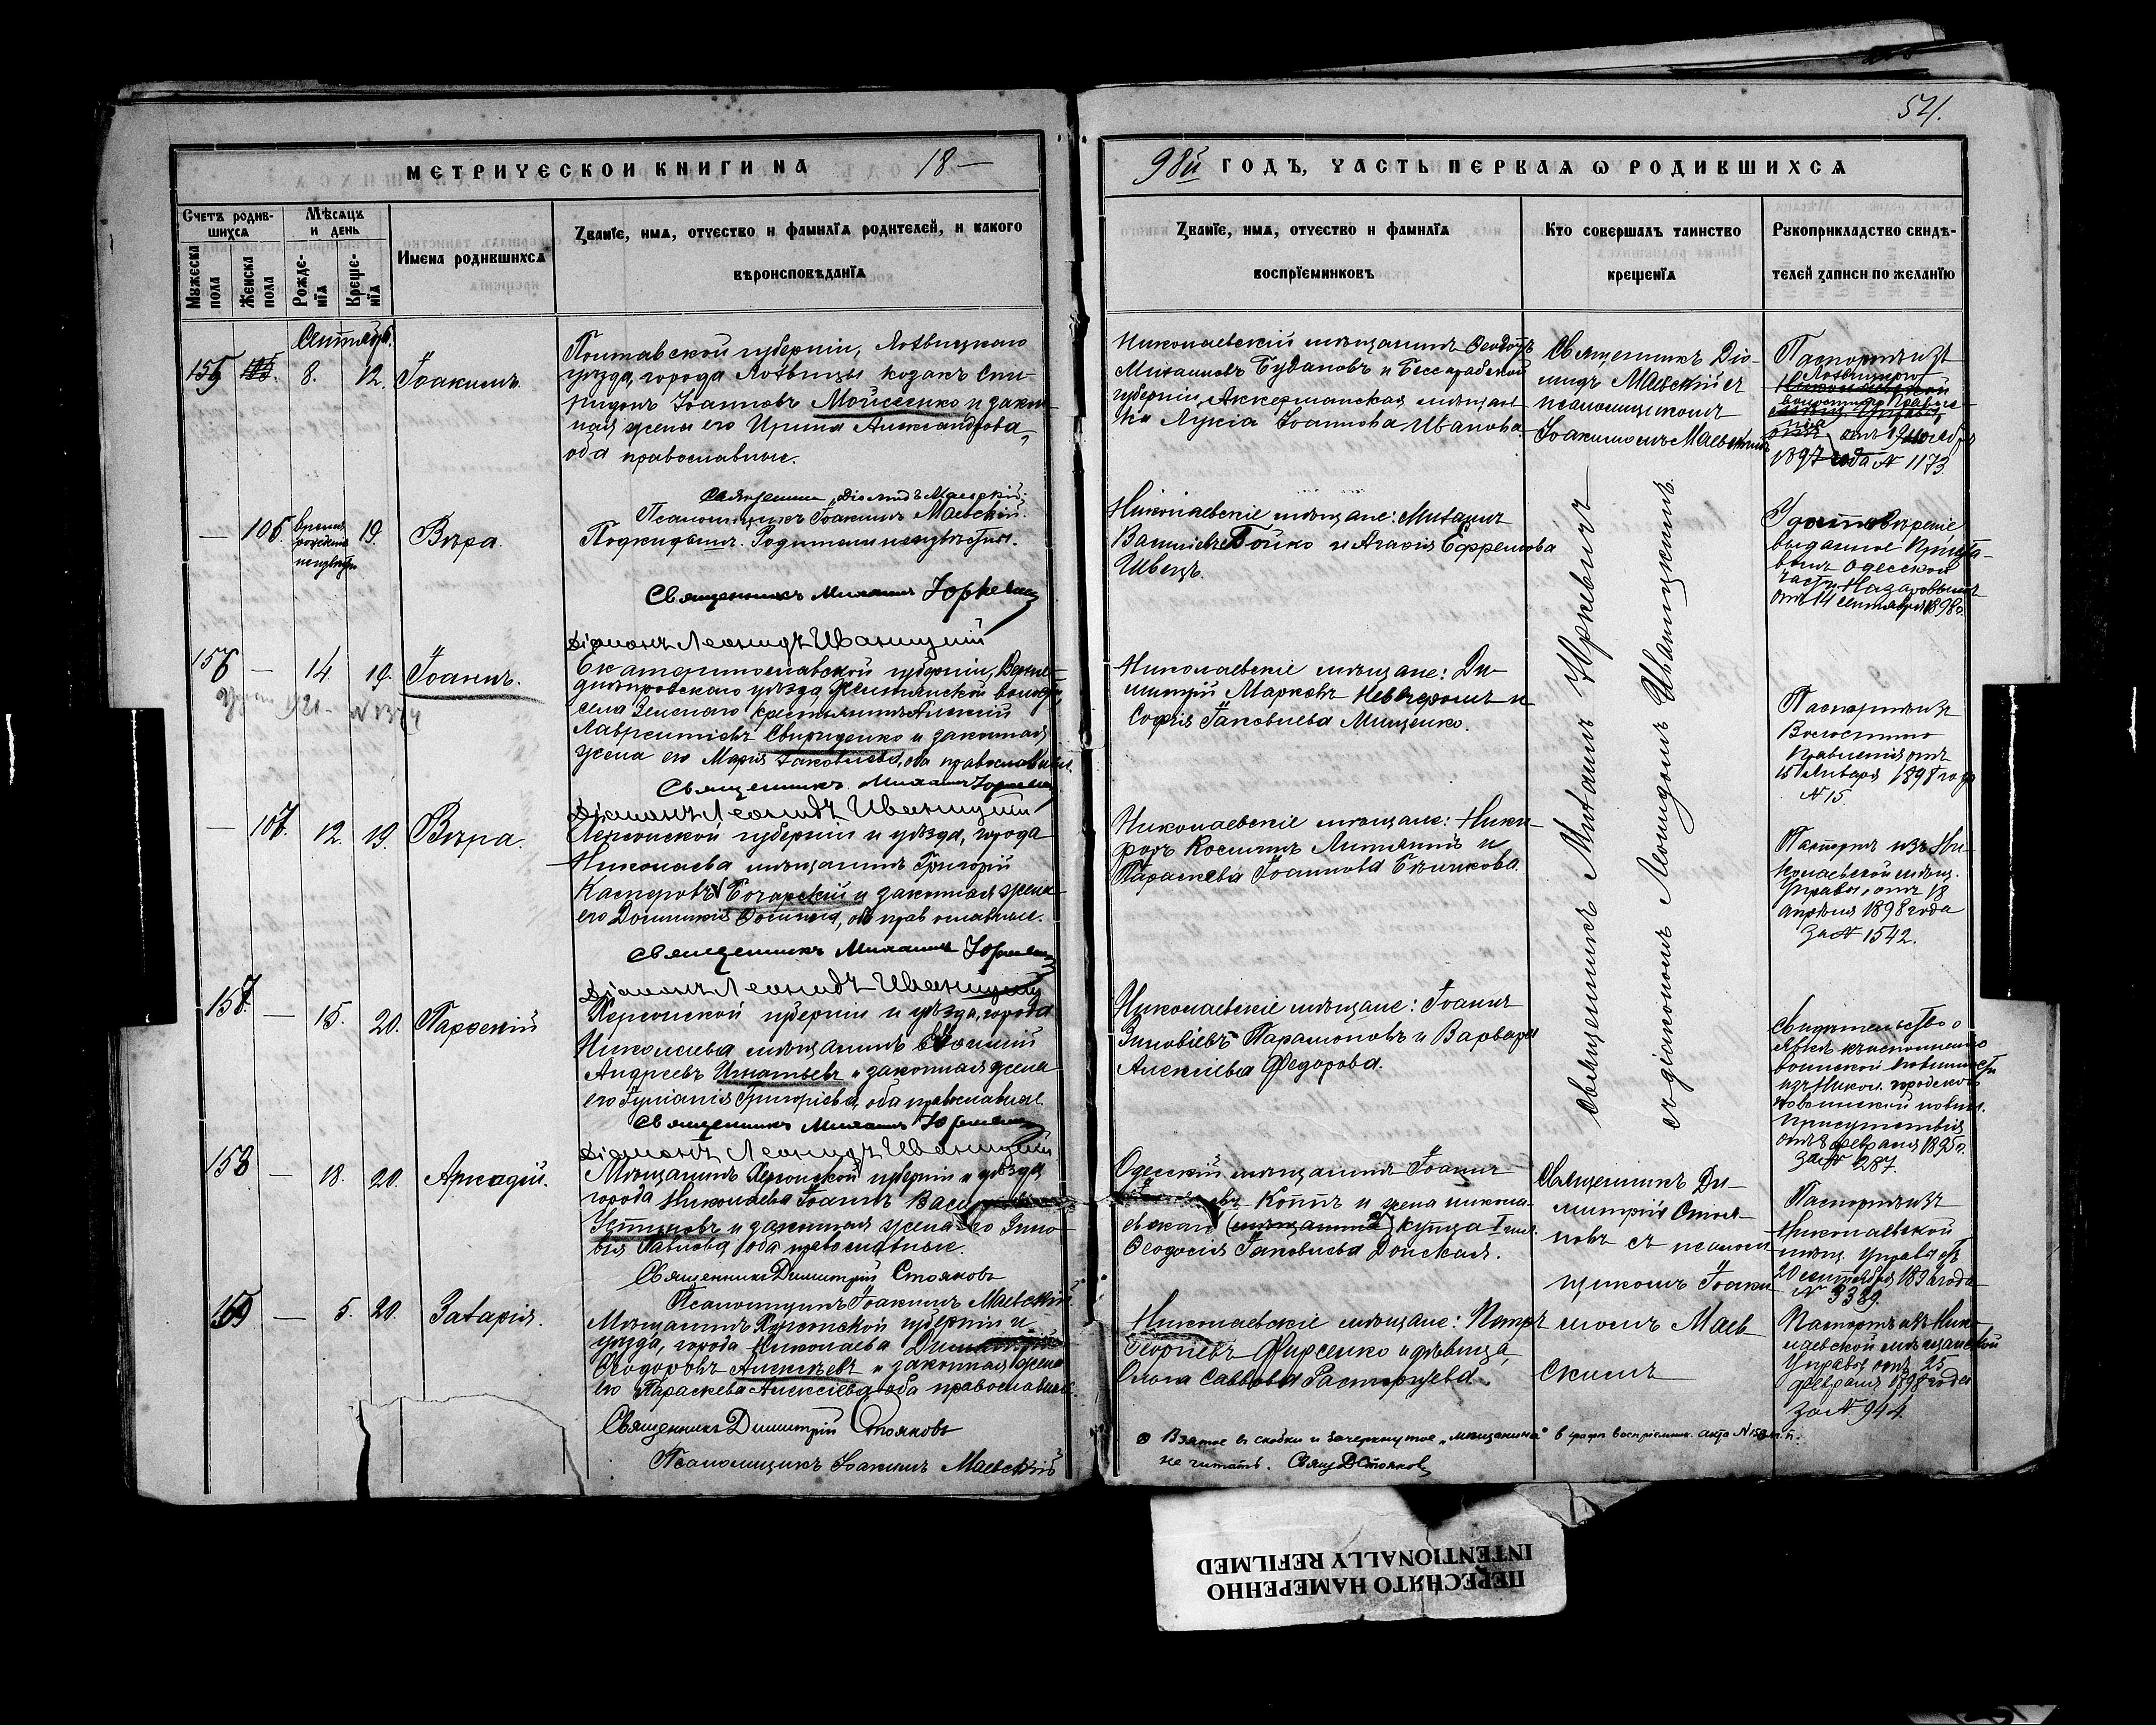 54.
МЕТРИЧЕСКОЙ КНИГИ НА 18—
98й ГОДЪ, ЧАСТЬ ПЕРВАЯ Ѡ РОДИВШИХСЯ
Счетъ родив-
шихся
Мужеска пола
Женска пола
Мѣсяцъ
и день
Рожде-
нія
Креще-
нія
Имена родившихся
Званіе, имя, отчество и фамилія родителей, и какого
вѣроисповѣданія
Званіе, имя, отчество и фамилія
воспріемниковъ
Кто совершалъ таинство
крещенія
Рукоприкладство свидѣ-
телей записи по желанію
155 8. 12. Іоакимъ.
Полтавской губерніи, Лохвицкаго
уѣзда, города Лохвицы козакъ Спи-
ридонъ Іоанновъ Мойсеенко и закон-
ная жена его Ирина Александрова,
оба православные.
Священникъ Діомидъ Маевскій
Псаломщикъ Іоакимъ Маевскій.
Николаевскій мѣщанинъ
Михаиловъ Будановъ и Бессарабской
губерніи, Аккерманская мѣщан-
ка Лукія Іоаннова Иванова
Священникъ Діо-
мидъ Маевскій съ
псаломщикомъ
Іоакимомъ Маевскимъ
Паспортъ изъ
Лохвицкого
1897 года № 1173.
— 106. Время рожденія неизвѣстно 19. Вѣра.
Подкидышъ. Родители неизвѣстны.
Священникъ Михаилъ Юркевичъ
Діаконъ Леонидъ Иваницкій
Николаевскіе мѣщане: Михаилъ
Бойко и Агафія Ефремова
Швецъ.
Священникъ Михаилъ Юркевичъ
съ діакономъ Леонидомъ Иваницкимъ.
Удостовѣреніе,
выданное Приста-
вомъ Одесской
части Назаровымъ
отъ 14 сентября 1898 г.
156 — 14. 19. Іоаннъ.
Екатеринославской губерніи, Верхне-
днѣпровскаго уѣзда,
села крестьянинъ Алексій
Лаврентіевъ Свириденко и законная
жена его Марія Іаковлева, оба православные.
Священникъ Михаилъ Юркевичъ
Діаконъ Леонидъ Иваницкій
Николаевскіе мѣщане: Ди-
митрій Марковъ и
Софія Іаковлева Мищенко.
Паспортъ изъ
Волостного
Правленія отъ
15 Января 1898 года
№ 15.
— 107. 12. 19. Вѣра.
Херсонской губерніи и уѣзда, города
Николаева мѣщанинъ Григорій
Каспровъ Бочарскій и законная жена
его Домникія, оба православные.
Священникъ Михаилъ Юркевичъ
Діаконъ Леонидъ Иваницкій
Николаевскіе мѣщане: Ники-
форъ Косминъ и
Параскева Іоаннова Бычкова.
Паспортъ изъ Ни-
колаевской мѣщ.
Управы, отъ 18
апрѣля 1898 года
за № 1542.
157. — 15. 20. Парѳеній
Херсонской губерніи и уѣзда, города
Николаева мѣщанинъ
Андреевъ Игнатьевъ и законная жена
его Іуліанія Григорьева, оба православные.
Священникъ Михаилъ Юркевичъ
Діаконъ Леонидъ Иваницкій
Николаевскіе мѣщане: Іоаннъ
Зиновіевъ Парамоновъ и Варвара
Алексіева Федорова.
Свидѣтельство о
явкѣ къ исполненію
воинской повинности
изъ Никол. городского
по воинской повин.
присутствія
отъ 8 февраля 1895 г.
за № 287.
158 — 18. 20. Аркадій.
Мѣщанинъ Херсонской губерніи и уѣзда
города Николаева Іоаннъ
Устиновъ и законная жена его Зино-
вія Павлова, оба православные.
Священникъ Димитрій Стояковъ
Псаломщикъ Іоакимъ Маевскій.
Одесскій мѣщанинъ Іоаннъ
Коттъ и жена никола-
евскаго (мѣщанина) купца I гил.
Ѳеодосія Іаковлева Донская.
Священникъ Ди-
митрій Стоя-
ковъ съ псалом-
щикомъ Іоаки-
момъ Маев-
скимъ
Паспортъ изъ
Николаевской
мѣщ. Управы отъ
20 сентября
№ 3389.
159 — 5. 20. Захарія.
Мѣщанинъ Херсонской губерніи и
уѣзда, города Николаева Димитрій
Ѳеодоровъ Алексѣевъ и законная жена
его Параскева Алексіева, оба православные.
Священникъ Димитрій Стояковъ
Псаломщикъ Іоакимъ Маевскій
Николаевскіе мѣщане: Петръ
Георгіевъ Фирсенко и дѣвица,
Саввова Расторгуева.
Паспортъ изъ Нико-
лаевской мѣщанской
Управы отъ 25
февраля 1898 года
за № 944.
Взятое въ скобки и зачеркнутое „мѣщанина" въ графѣ воспріемник. акта № 158 м. п.
не читать. Свящ. Д Стояковъ
ПЕРЕСНЯТО НАМЕРЕННО
INTENTIONALLY REFILMED